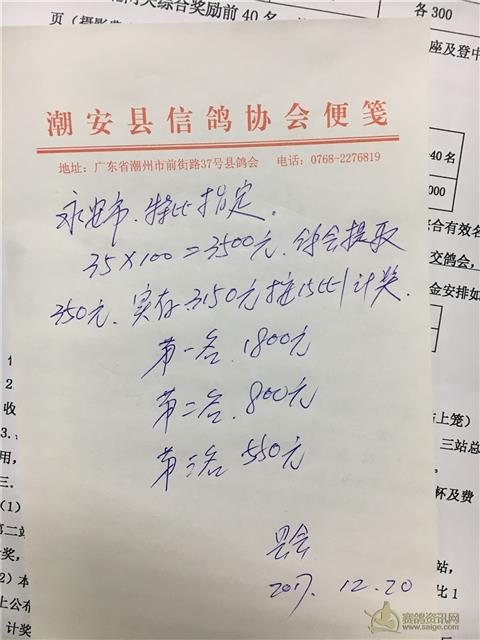 关综合奖励前40名
各300
座及登中
页(摄影费
潮安县信鸽协会便笺
地址:广东省潮州市前街路37号县鸽会 电话:0768-2276819
40名
000
综合有效名
交鸽会,
金安排如
永安市、特比指定.
35×100=3500元.
提取
350元、实存3150元按15比1计奖.
第一名.1800元
第二名.800元
第三名 550元
2017.12.20
2
收
3.
用,
三.
(1)
第二站
计奖,
2)本
上公布
计奖
与上笼)
三站总
杯及费
站,
比1
赛鸽资讯网
www.saige.com